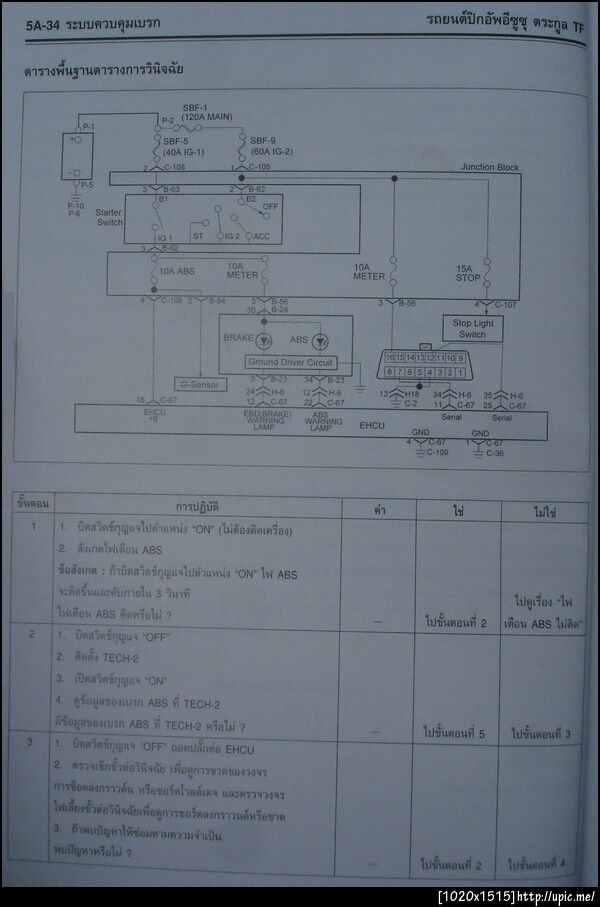 5A-34 ระบบควบคุมเบรก
รถยนต์ปิกอัพอีซูซุ ตระกูล TF
ตารางพื้นฐานตารางการวินิจฉัย
SBF-1
(120A MAIN)
P-1
P-2
SBF-5
(40A IG-1)
SBF-9
(60A IG-2)
+
-
P-5
P-10,
P-6
2 C-108
1 C-108
Junction Block
3 B-63
2 B-62
Starter
Switch
B1
B2
OFF
IG 1
ST
IG 2
ACC
3 B-62
10A ABS
10A
METER
10A
METER
15A
STOP
4 C-108
2 B-54
5 B-56
3 B-56
4 C-107
30 B-24
Stop Light
Switch
BRAKE
ABS
Ground Driver Circuit
16 15 14 13 12 11 10 9
8 7 6 5 4 3 2 1
G-Sensor
5 B-23
34 B-23
24 H-6
12 H-6
13 H18
34 H-6
35 H-6
18 C-67
12 C-67
22 C-67
C-2
11 C-67
25 C-67
EHCU
+B
EBD(BRAKE)
WARNING
LAMP
ABS
WARNING
LAMP
EHCU
Serial
Serial
GND
GND
4 C-67
1 C-67
C-109
C-36
ขั้นตอน
การปฏิบัติ
ค่า
ใช่
ไม่ใช่
1
1. บิดสวิตช์กุญแจไปตำแหน่ง "ON" (ไม่ต้องติดเครื่อง)
2. สังเกตไฟเตือน ABS
ข้อสังเกต : ถ้าบิดสวิตช์กุญแจไปตำแหน่ง "ON" ไฟ ABS
จะติดขึ้นและดับภายใน 3 วินาที
ไฟเตือน ABS ติดหรือไม่ ?
—
ไปขั้นตอนที่ 2
ไปดูเรื่อง "ไฟ
เตือน ABS ไม่ติด"
2
1. บิดสวิตช์กุญแจ "OFF"
2. ติดตั้ง TECH-2
3. เปิดสวิตช์กุญแจ "ON"
4. ดูข้อมูลของเบรก ABS ที่ TECH-2
มีข้อมูลของเบรก ABS ที่ TECH-2 หรือไม่ ?
—
ไปขั้นตอนที่ 5
ไปขั้นตอนที่ 3
3
1. บิดสวิตช์กุญแจ "OFF" ถอดปลั๊กต่อ EHCU
2. ตรวจเช็กขั้วต่อวินิจฉัย เพื่อดูการขาดของวงจร
การช็อตลงกราวด์น หรือชอร์ตโวลต์เตจ และตรวจวงจร
ไฟเลี้ยงขั้วต่อวินิจฉัยเพื่อดูการชอร์ตลงกราวนด์หรือขาด
3. ถ้าพบปัญหาให้ซ่อมตามความจำเป็น
พบปัญหาหรือไม่ ?
—
ไปขั้นตอนที่ 2
ไปขั้นตอนที่ 4
[1020x1515]http://upic.me/